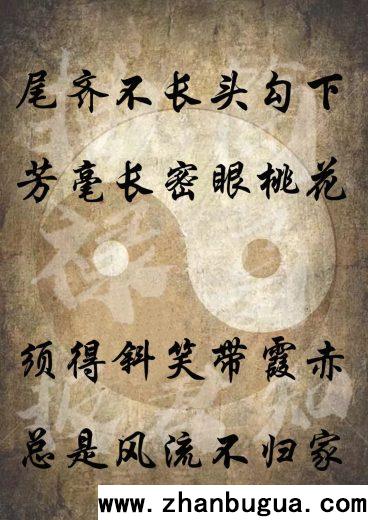 尾齐不长头勾下
芳毫长密眼桃花
须得斜笑带霞赤
总是风流不归家
www.zhanbugua.com